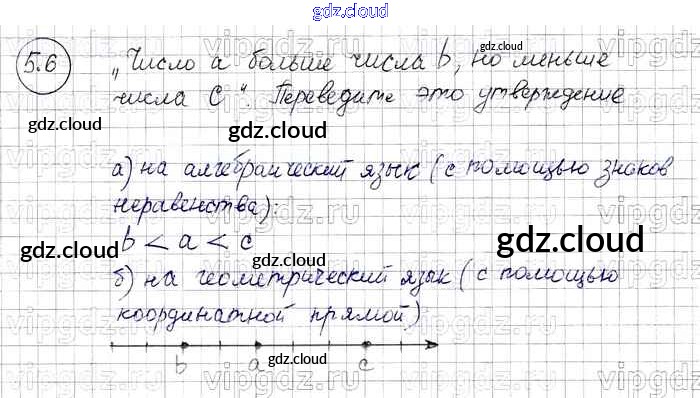 gdz.cloud
5.6 „Число a больше числа b, но меньше
числа C“. Переведите это утверждение
gdz.cloud
а) на алгебраический язык (с помощью знаков
неравенства):
b < a < c
б) на геометрический язык (с помощью
координатной прямой)
b a c
gdz.cloud
gdz.cloud
gdz.cloud
gdz.cloud
gdz.cloud
gdz.cloud
gdz.cloud
gdz.cloud
gdz.cloud